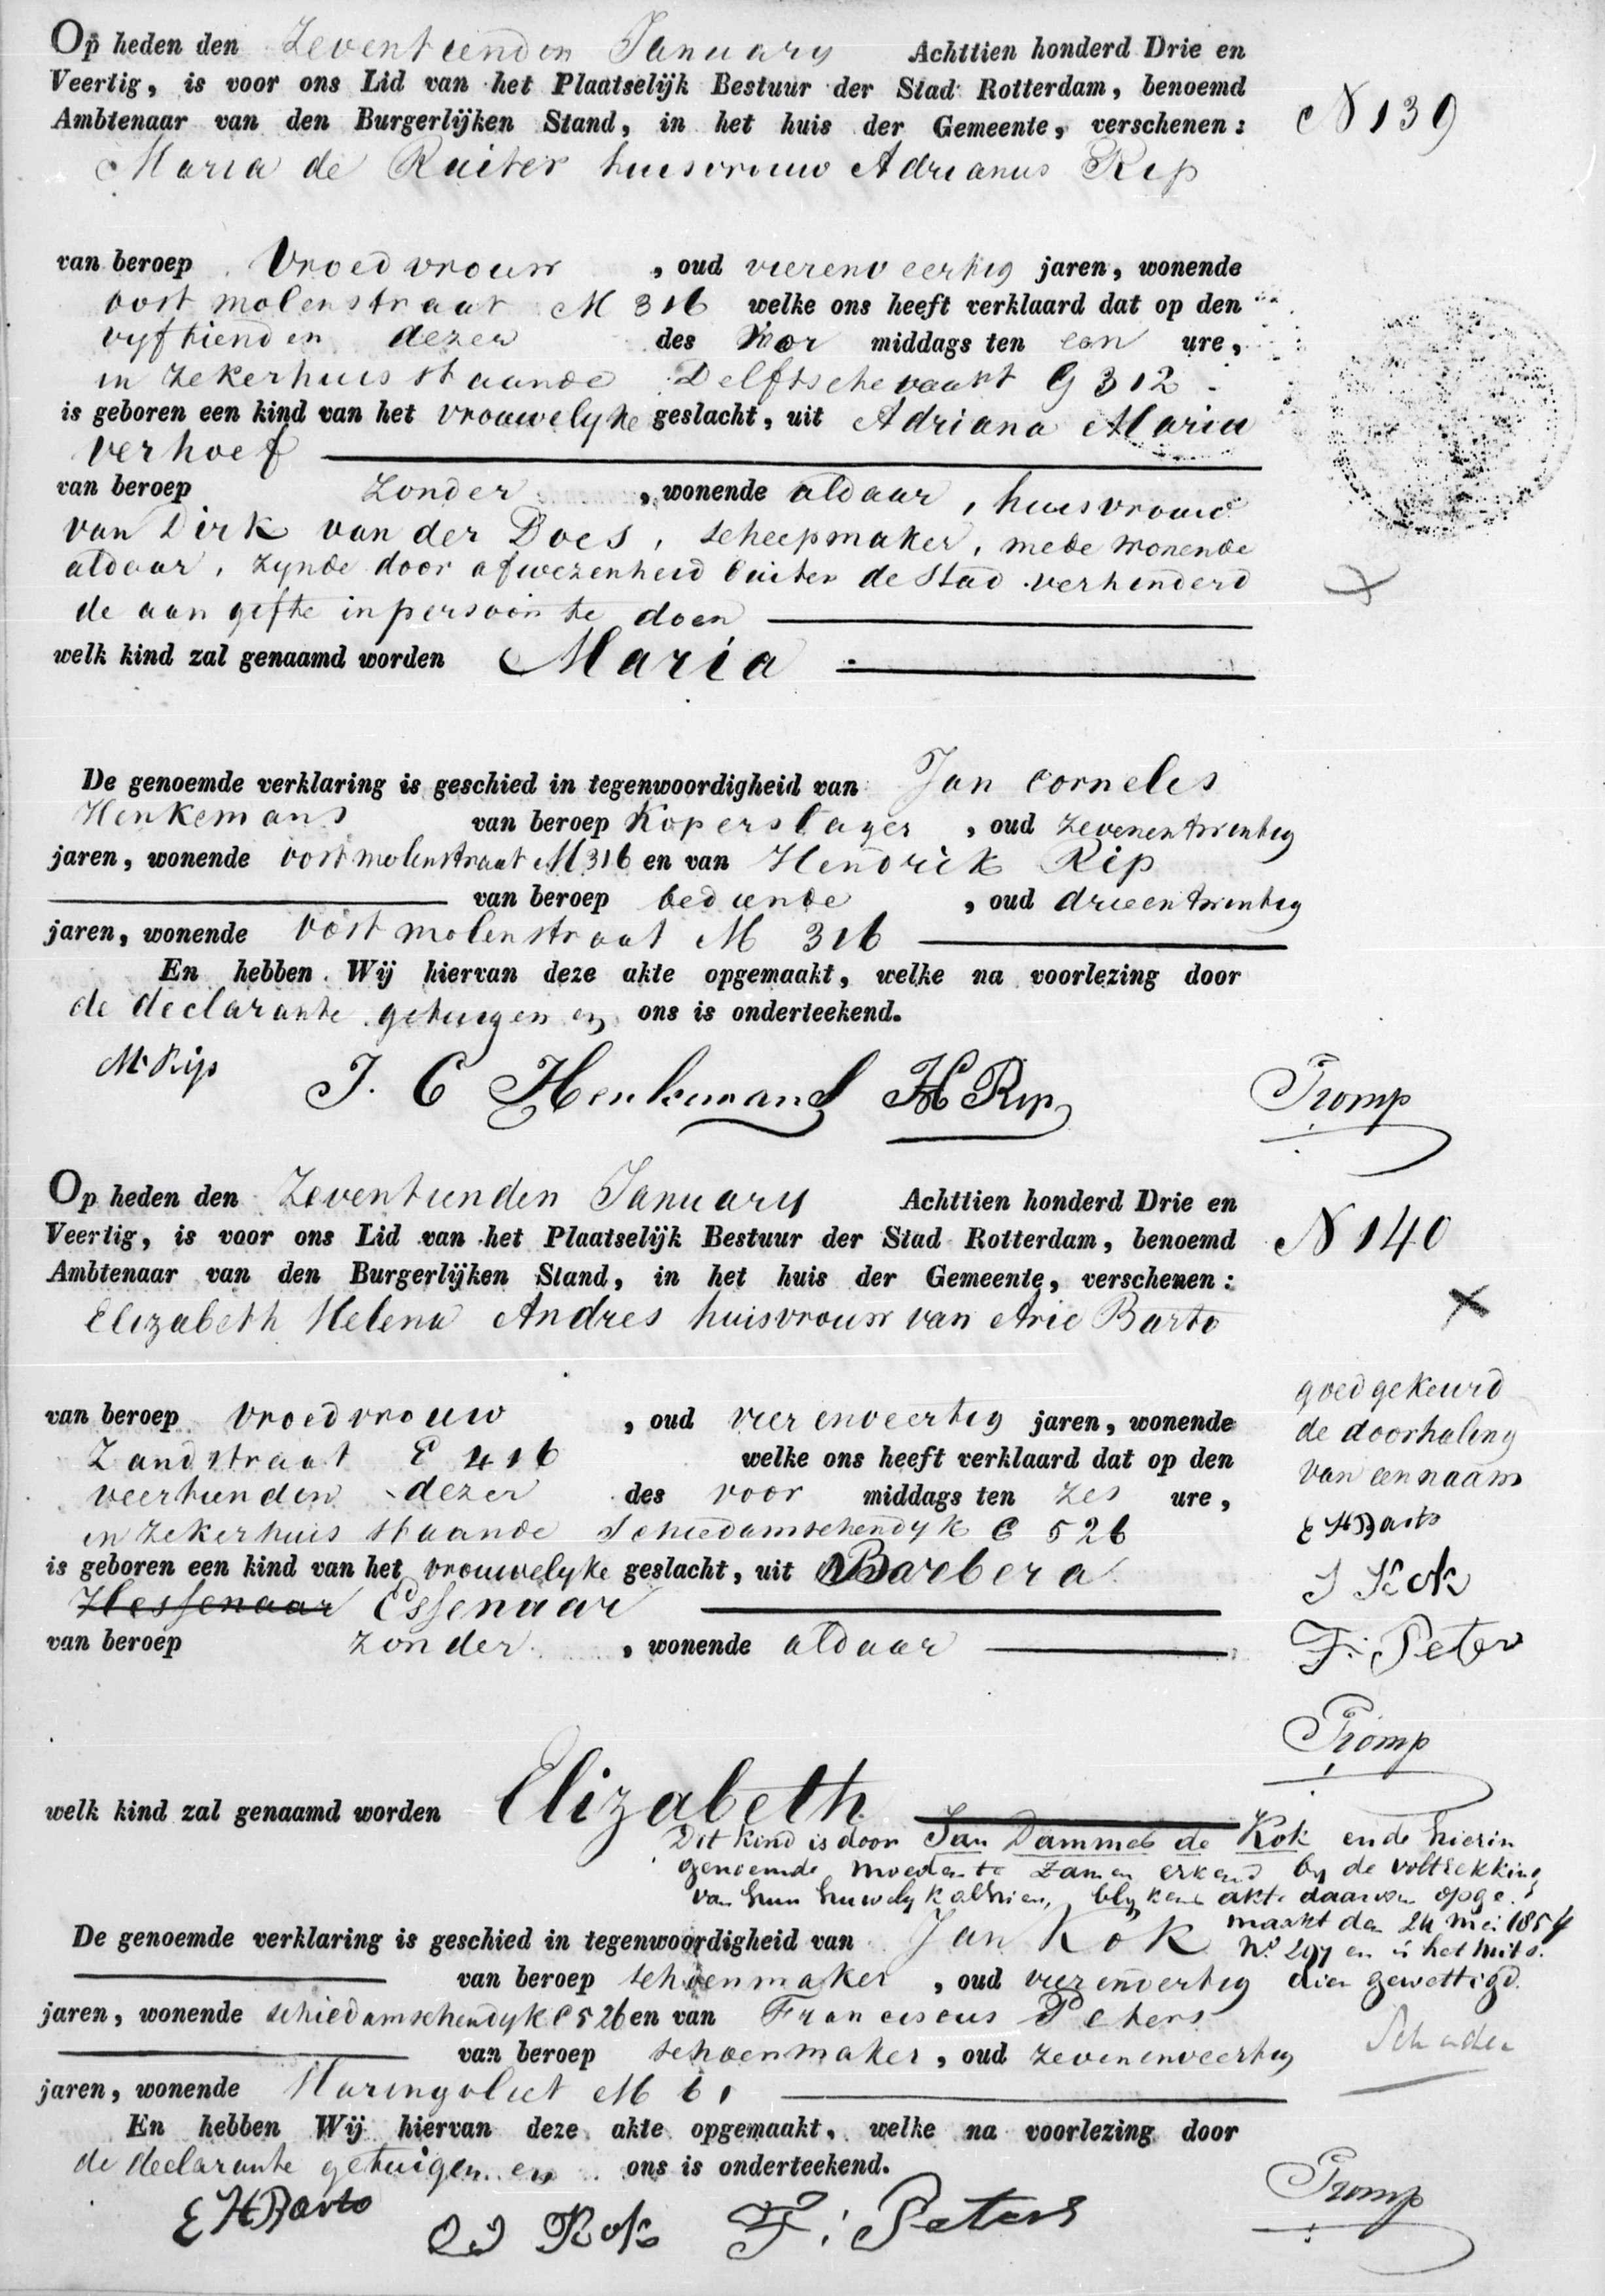 Op heden den Zeventienden January Achttien honderd Drie en
Veertig, is voor ons Lid van het Plaatselijk Bestuur der Stad Rotterdam, benoemd
Ambtenaar van den Burgerlijken Stand, in het huis der Gemeente, verschenen:
N 139
Maria de Ruiter huisvrouw Adrianus Rip
van beroep Vroedvrouw , oud vierenveertig jaren, wonende
oost molenstraat M 316 welke ons heeft verklaard dat op den
vyftienden dezer des voor middags ten een ure,
in zekerhuis staande Delftschevaart G 312
is geboren een kind van het vrouwelyke geslacht, uit Adriana Maria
verhoef
van beroep Zonder , wonende aldaar , huisvrouw
van Dirk van der Does , scheepmaker, mede wonende
aldaar, zynde door afwezenheid buiten de Stad verhinderd
de aangifte in persoon te doen
welk kind zal genaamd worden Maria
De genoemde verklaring is geschied in tegenwoordigheid van Jan Cornelis
Henkemans van beroep Koperslager , oud zevenentwintig
jaren, wonende oostmolenstraat M 316 en van Hendrick Rip
van beroep bediende , oud drieentwintig
jaren, wonende oost molenstraat M 316
En hebben Wij hiervan deze akte opgemaakt, welke na voorlezing door
de declarante getuigen en ons is onderteekend.
M Rip J. C Henkemans H Rip Tromp
Op heden den Zeventienden January Achttien honderd Drie en
Veertig, is voor ons Lid van het Plaatselijk Bestuur der Stad Rotterdam, benoemd
Ambtenaar van den Burgerlijken Stand, in het huis der Gemeente, verschenen:
N 140
Elizabeth Helena Andres huisvrouw van Arie Barto
van beroep vroedvrouw , oud vierenveertig jaren, wonende
Zandstraat E 416 welke ons heeft verklaard dat op den
veertienden dezer des voor middags ten zes ure,
in zekerhuis staande Schiedamschendyk C 526
is geboren een kind van het vrouwelyke geslacht, uit Barbera
Hessenaar Essenaar
van beroep zonder , wonende aldaar
goedgekeurd
de doorhaling
van een naam
E H Barto
J Kok
F: Peters
Tromp
welk kind zal genaamd worden Elizabeth
Dit kind is door Jan Dammes de Kok en de hierin
genoemde moeder te zamen erkend by de voltrekking
van hun huwelyk alhier, blykens akte daarvan opge-
maakt den 24 Mei 1854
No 297 en is het mits-
dien gewettigd.
De genoemde verklaring is geschied in tegenwoordigheid van Jan Kok
van beroep schoenmaker , oud vierenveertig
jaren, wonende schiedamschendyk C 526 en van Franciscus Peters
van beroep schoenmaker , oud zevenenveertig
jaren, wonende Haringvliet M 61
En hebben Wij hiervan deze akte opgemaakt, welke na voorlezing door
de declarante getuigen en ons is onderteekend.
E H Barto J Kok F: Peters Tromp